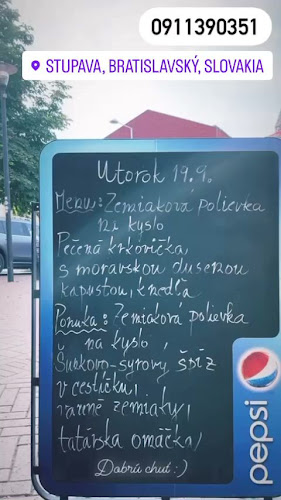 0911390351
STUPAVA, BRATISLAVSKÝ, SLOVAKIA
Utorok 19.9.
Menu: Zemiaková polievka
na kyslo
Pečená krkovička,
s moravskou dusenou
kapustou, knedľa
Ponuka: Zemiaková polievka
na kyslo,
Šunkovo-syrový špíz
v cestíčku,
varené zemiaky,
tatárska omáčka,
Dobrú chuť :)
pepsi